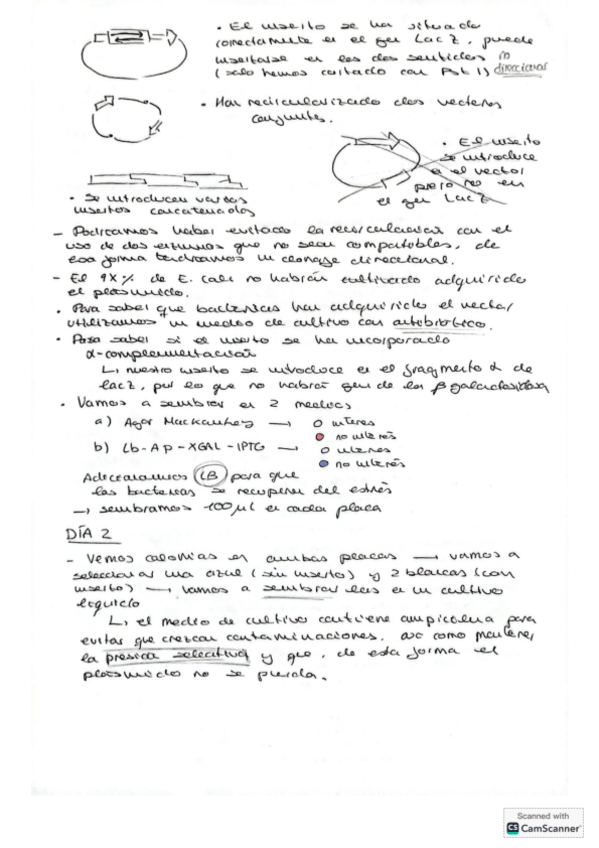 • El inserto se ha situado
correctamente en el gen Lac Z, puede
insertarse en los dos sentidos in
(solo hemos cortado con Pst I) direccional
• Han recircularizado dos vectores
conjuntos.
• El inserto
se introduce
a el vector
pero no en
el gen Lac Z
• Se introducen varios
insertos concatenados
- Podríamos haber evitado la recircularización con el
uso de dos enzimas que no sean compatibles, de
esa forma tendríamos un clonaje direccional.
- El 9X% de E. coli no habrán cultivado adquirido
el plásmido.
• Para saber que bacterias han adquirido el vector
utilizamos un medio de cultivo con antibiótico.
• Para saber si el inserto se ha incorporado
α-complementación
↳ nuestro inserto se introduce en el fragmento α de
lacZ, por lo que no habrá gen de la β galactosidasa
• Vamos a sembrar en 2 medios
a) Agar Mackonkey → o interés
o no interés
b) Lb-Ap-XGAL-IPTG → o interés
o no interés
Adicionamos LB para que
las bacterias se recuperen del estrés
→ sembramos 100 μl en cada placa
DÍA 2
- Vemos colonias en ambas placas → vamos a
seleccionar una azul (sin inserto) y 2 blancas (con
inserto) → vamos a sembrarlas en un cultivo
líquido
↳ el medio de cultivo contiene ampicilina para
evitar que crezcan contaminaciones, así como mantener
la presión selectiva y que, de esta forma el
plásmido no se pierda.
Scanned with
CS CamScanner